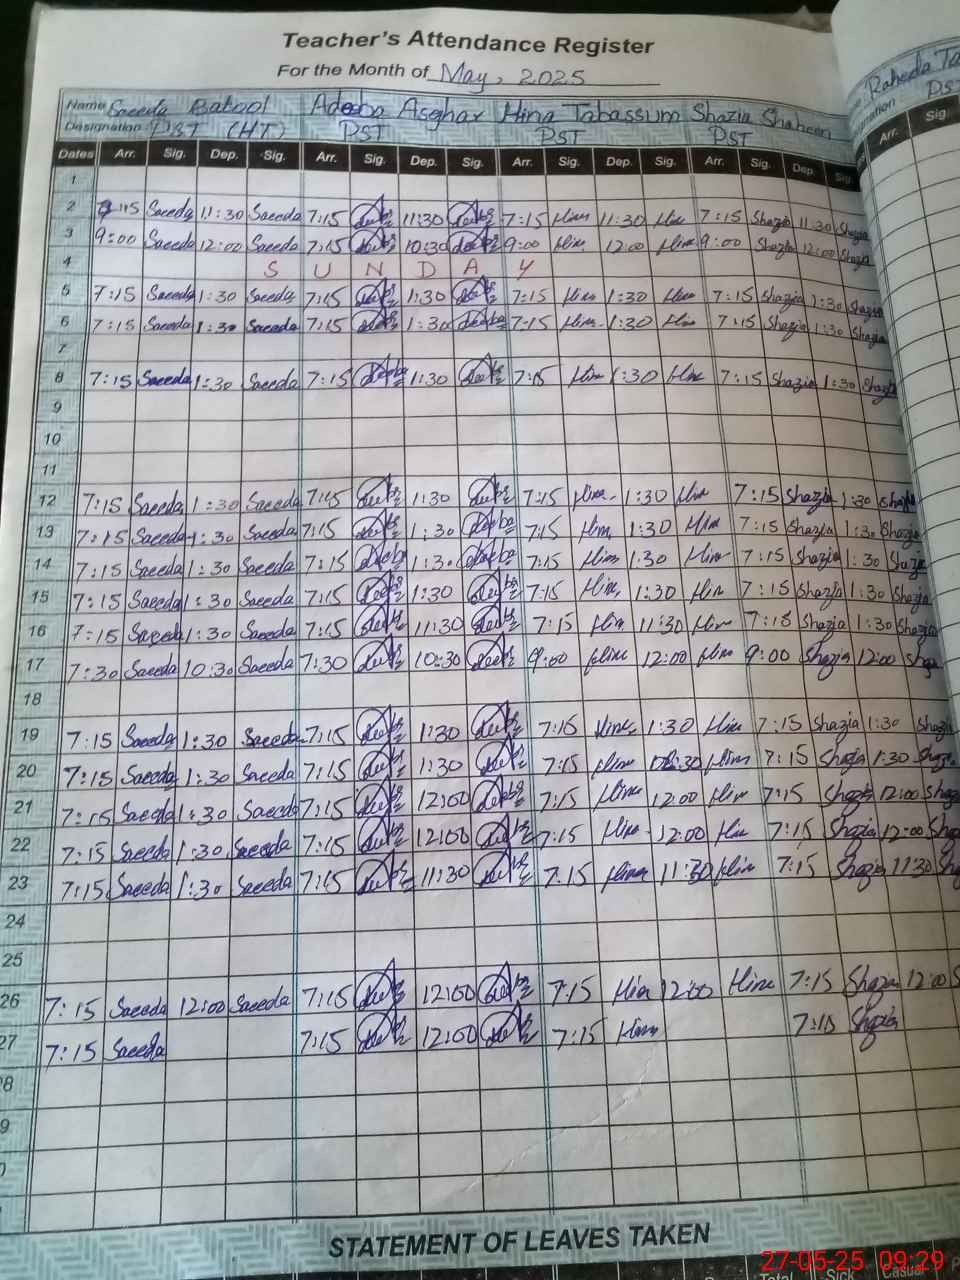 Teacher's Attendance Register
For the Month of May, 2025
Name Saeeda Batool Adeeba Asghar Hina Tabassum Shazia Shaheen Raheda Ta
Designation PST (HT) PST PST PST PST
Dates Arr. Sig. Dep. Sig. Arr. Sig. Dep. Sig. Arr. Sig. Dep. Sig. Arr. Sig. Dep. Sig Arr. Sig.
1
2 7:15 Saeeda 11:30 Saeeda 7:15 11:30 7:15 Hina 11:30 Hina 7:15 Shazia 11:30 Shazia
3 9:00 Saeeda 12:00 Saeeda 7:15 10:30 9:00 Hina 12:00 Hina 9:00 Shazia 12:00 Shazia
4 S U N D A Y
5 7:15 Saeeda 1:30 Saeeda 7:15 1:30 7:15 Hina 1:30 Hina 7:15 Shazia 1:30 Shazia
6 7:15 Saeeda 1:30 Saeeda 7:15 1:30 7:15 Hina 1:30 Hina 7:15 Shazia 1:30 Shazia
7
8 7:15 Saeeda 1:30 Saeeda 7:15 1:30 7:15 Hina 1:30 Hina 7:15 Shazia 1:30 Shazia
9
10
11
12 7:15 Saeeda 1:30 Saeeda 7:15 1:30 7:15 Hina 1:30 Hina 7:15 Shazia 1:30 Shazia
13 7:15 Saeeda 1:30 Saeeda 7:15 1:30 7:15 Hina 1:30 Hina 7:15 Shazia 1:30 Shazia
14 7:15 Saeeda 1:30 Saeeda 7:15 1:30 7:15 Hina 1:30 Hina 7:15 Shazia 1:30 Shazia
15 7:15 Saeeda 1:30 Saeeda 7:15 1:30 7:15 Hina 1:30 Hina 7:15 Shazia 1:30 Shazia
16 7:15 Saeeda 1:30 Saeeda 7:15 11:30 7:15 Hina 11:30 Hina 7:15 Shazia 1:30 Shazia
17 7:30 Saeeda 10:30 Saeeda 7:30 10:30 9:00 Hina 12:00 Hina 9:00 Shazia 12:00
18
19 7:15 Saeeda 1:30 Saeeda 7:15 1:30 7:15 Hina 1:30 Hina 7:15 Shazia 1:30 Shazia
20 7:15 Saeeda 1:30 Saeeda 7:15 1:30 7:15 Hina Hina 7:15 Shazia 1:30
21 7:15 Saeeda 1:30 Saeeda 7:15 12:00 7:15 Hina 12:00 Hina 7:15 Shazia 12:00
22 7:15 Saeeda 1:30 Saeeda 7:15 12:00 7:15 Hina 12:00 Hina 7:15 Shazia 12:00
23 7:15 Saeeda 1:30 Saeeda 7:15 11:30 7:15 Hina 11:30 Hina 7:15 Shazia 11:30
24
25
26 7:15 Saeeda 12:00 Saeeda 7:15 12:00 7:15 Hina 12:00 Hina 7:15 Shazia 12:00 S
27 7:15 Saeeda 7:15 12:00 7:15 Hina 7:15 Shazia
8
9
0
STATEMENT OF LEAVES TAKEN
27-05-25 09:29
Total Sick Casual